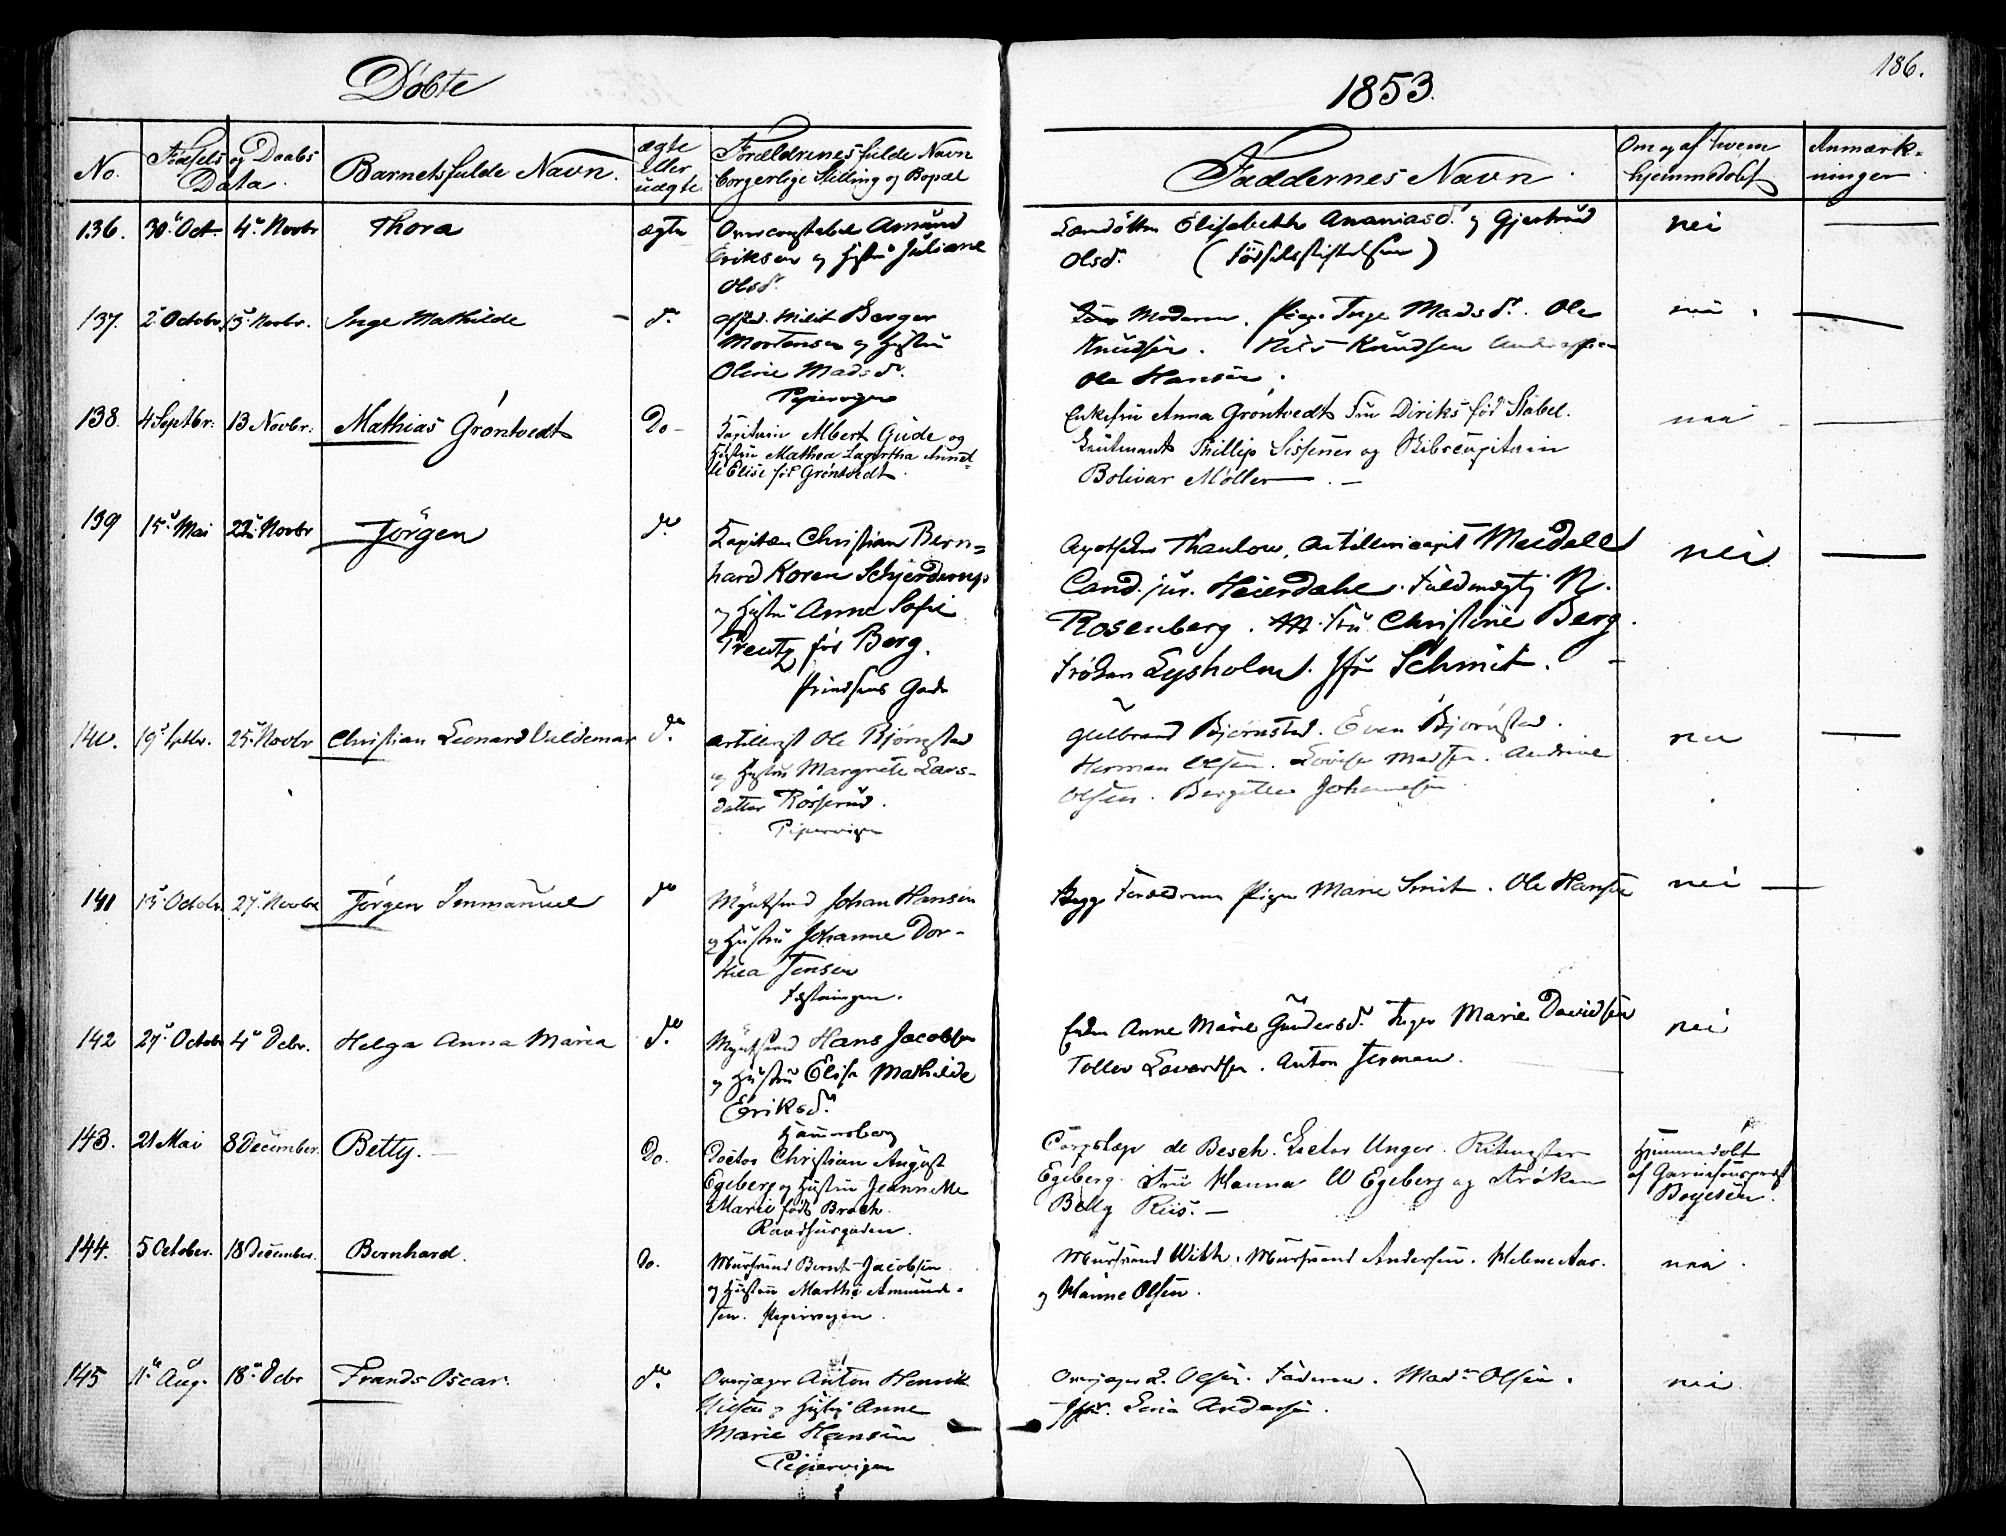 Døbte
1853.
186.
No.
Fødsels og Daabs
Data.
Barnets fulde Navn.
ægte
eller
uægte
Forældrenes fulde Navn
borgerlige Stilling og Bopæl
Faddernes Navn.
Om og af hvem
hjemmedøbt
Anmærk-
ninger
136. 30' Oct. 4' Novbr Thora ægte Overconstabel Amund
Eriksen og Hustru Juliane
Olsd.
Elisabeth Ananiasd. og Gjertrud
Olsd. (Fødselsstiftelsen)
nei
137. 2' Octobr. 13' Novbr. Inge Mathilde d. Milit Berger
Mortensen og Hustru
Oline Madsd.
Pipervigen
Moderen. Pige Inge Madsd. Ole
Knudsen. Nils Knudsen
Ole Hansen.
nei
138. 4 Septbr. 13 Novbr. Mathias Grøntvedt Do Kapitain Albert Gude og
Hustru Mathea Lagertha Annet-
te Elise fød Grøntvedt.
Enkefru Anna Grøntvedt Fru Diriks fød Stabel.
Leutenant Phillip Sissener og Skibscapitain
Bolivar Møller
nei
139 15' Mai 22' Novbr Jørgen do Kapitæn Christian Bern-
hard Koren Schjerderup
og Hustru Anne Sofie
Preutz fød Berg.
Prindsens Gade
Apotheker Thaulow, Artillericapit Meidell
Cand. jur. Heierdahl. Fuldmægtig N.
Rosenberg. Fru Christine Berg.
Frøken Lysholm. Jfr Schmit.
nei
140. 19' Sptbr. 25' Novbr Christian Leonard Valdemar do. Artillerist Ole Bjørnstad
og Hustru Margrete Lars-
datter Rosserud.
Pipervigen
Gulbrand Bjørnstad. Even Bjørnstad.
Herman Olsen. Lovise Madsen. Andrine
Olsen. Bergitte Johannesen
nei
141 13' Octobr 27' Novbr Jørgen Immanuel do Myntsvend Johan Hansen
og Hustru Johanne Dor-
thea Jensen
Fæstningen.
Begge Forældrene Pigen Marie Smit. Ole Hansen
nei
142 27' Octobr 4' Debr. Helga Anna Maria do. Myntsvend Hans Jacobsen
og Hustru Elise Mathilde
Eriksd.
Hammersborg
Enken Anne Marie Gundersd. Inger Marie Davidsen
Tollev Lavardsen. Anton Jerman.
nei
143. 21 Mai 8 December. Betty. Do. Doctor Christian August
Egeberg og Hustru Jeannette
Marie født Broch.
Raadhusgaden.
Corpslæge de Besch. Lector Unger. Ritmester
Egeberg. Fru Hanna W Egeberg og Frøken
Betty Riis.
Hjemmedøbt
af Garnisonsprest
Boyesen.
144. 5 October. 18 December. Bernhard. Do. Mursvend Bernt Jacobsen
og Hustru Marthe Amund-
sen. Pipervigen.
Mursvend With. Mursvend Andersen. Helene Aas.
og Hanne Olsen.
nei.
145 11' Aug. 18' Debr Frands Oscar. do. Overjæger Anton Henrik
Nielsen og Hustru Anne
Marie Hansen
Pipervigen
Overjæger L. Olsen. Faderen. Mad. Olsen.
Jfr. Lena Andersen.
nei.